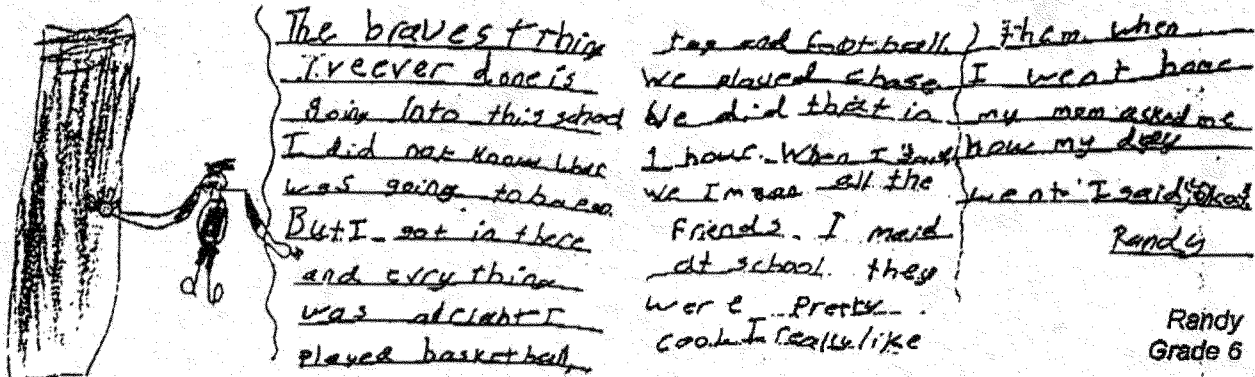 The bravest thing
I've ever done is
going into this school
I did not know
was going to
But I got in there
and evrything
was alright I
played basketball,
tag and football.
We played chase
We did that in
1 hour. When I say
we I mean all the
Friends. I maid
at school. they
were Pretty
cool. I really like
them. when
I went home
my mom asked me
how my day
went I said, "Okay."
Randy
Randy
Grade 6